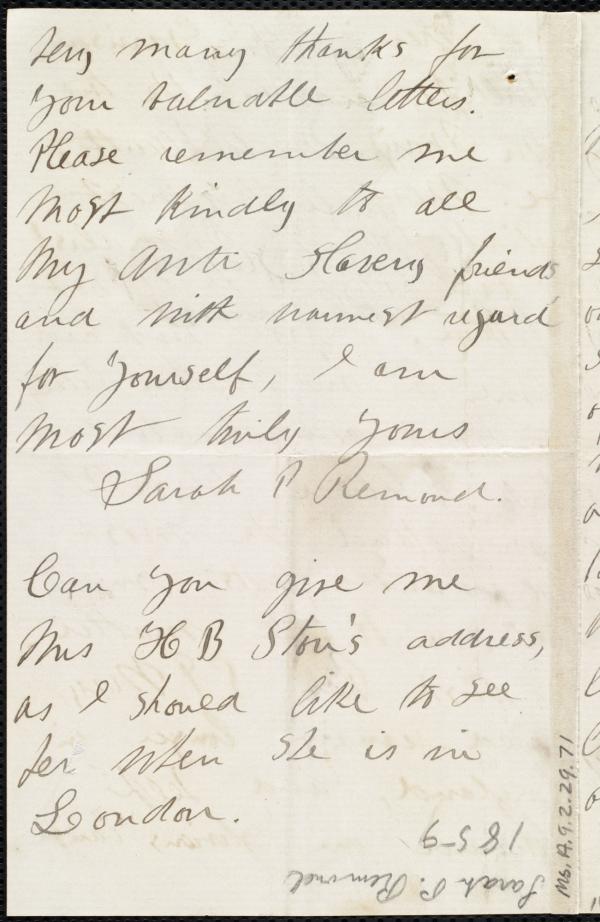 Very many thanks for
your valuable letters.
Please remember me
most kindly to all
my Anti Slavery friends
and with warmest regard
for yourself, I am
most truly yours
Sarah P Remond.
Can you give me
Mrs H B Stow's address,
as I should like to see
her when she is in
London.
1859
Sarah P. Remond
Ms. A. 9. 2. 29. 71